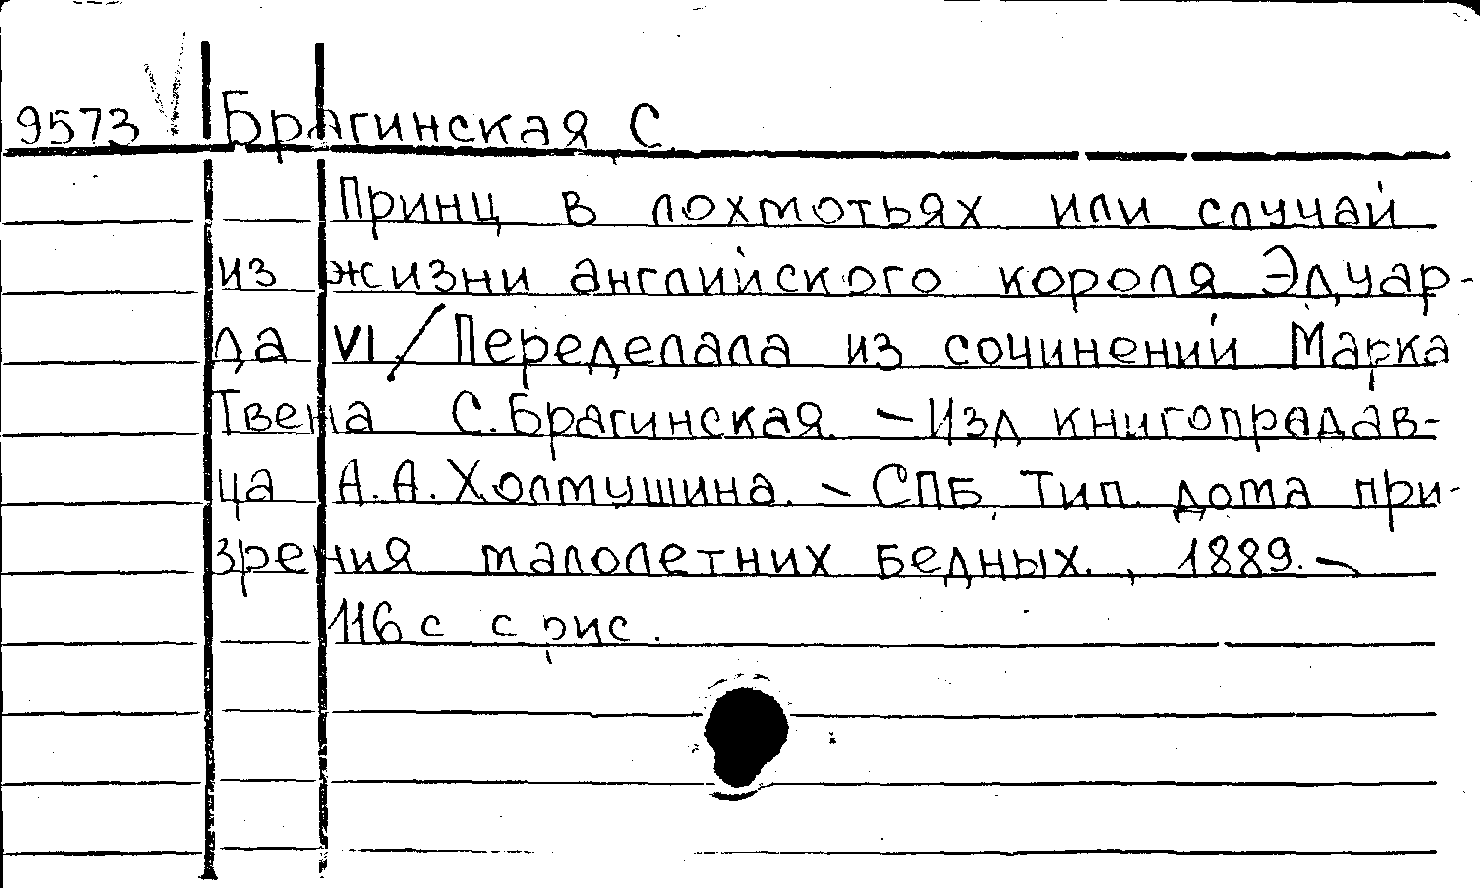 9573 Брагинская С.
Принц в лохмотьях или случай
из жизни английского короля Эдуар-
да VI / Переделала из сочинений Марка
Твена С. Брагинская. – Изд книгопрадав-
ца А.А. Холмушина. – СПБ, Тип. дома при-
зрения малолетних бедных., 1889. –
116 с с рис.